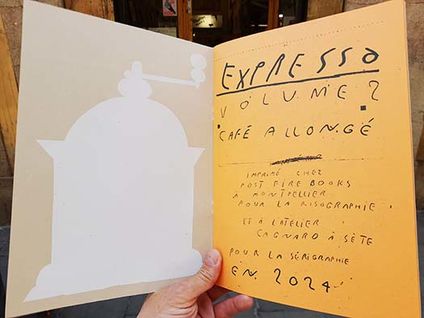 EXPRESSO
VOLUME 2
CAFÉ ALLONGÉ
IMPRIMÉ CHEZ
POST FIRE BOOKS
À MONTPELLIER
POUR LA RISOGRAPHIE
ET À L'ATELIER
CAGNARD À SÈTE
POUR LA SÉRIGRAPHIE
EN 2024